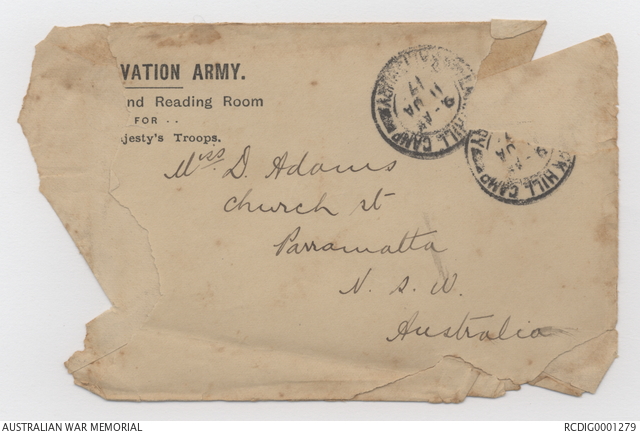 VATION ARMY.
nd Reading Room
FOR ..
jesty's Troops.
LARK HILL CAMP
9 - AM
11 JA
17
RK HILL CAMP
9 - AM
JA
Miss D. Adams
Church st
Parramatta
N. S. W.
Australia
AUSTRALIAN WAR MEMORIAL
RCDIG0001279